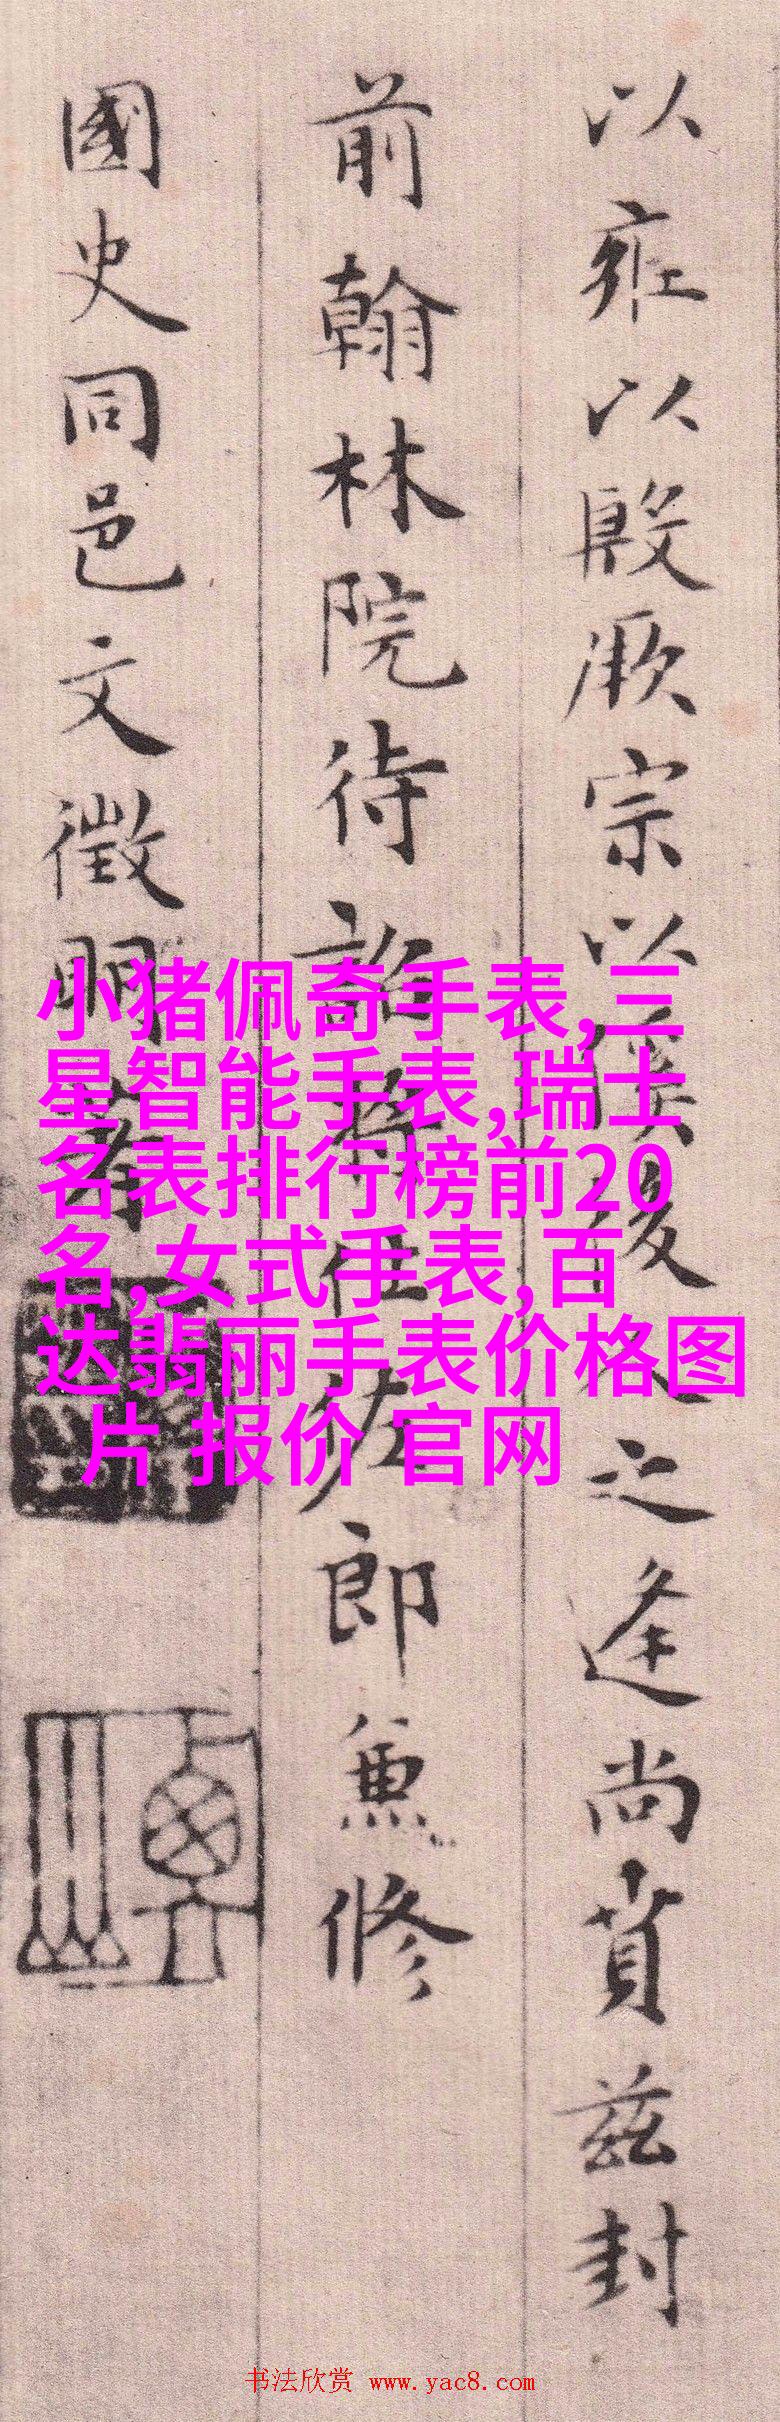 以雍以殷厥宗以溪後人之逢尚賁茲封
前翰林院待詔將仕佐郎兼修
國史同邑文徵明著
小猪佩奇手表,三
星智能手表,瑞士
名表排行榜前20
名,女式手表,百
达翡丽手表价格图
片 报价 官网
书法欣赏 www.yac8.com